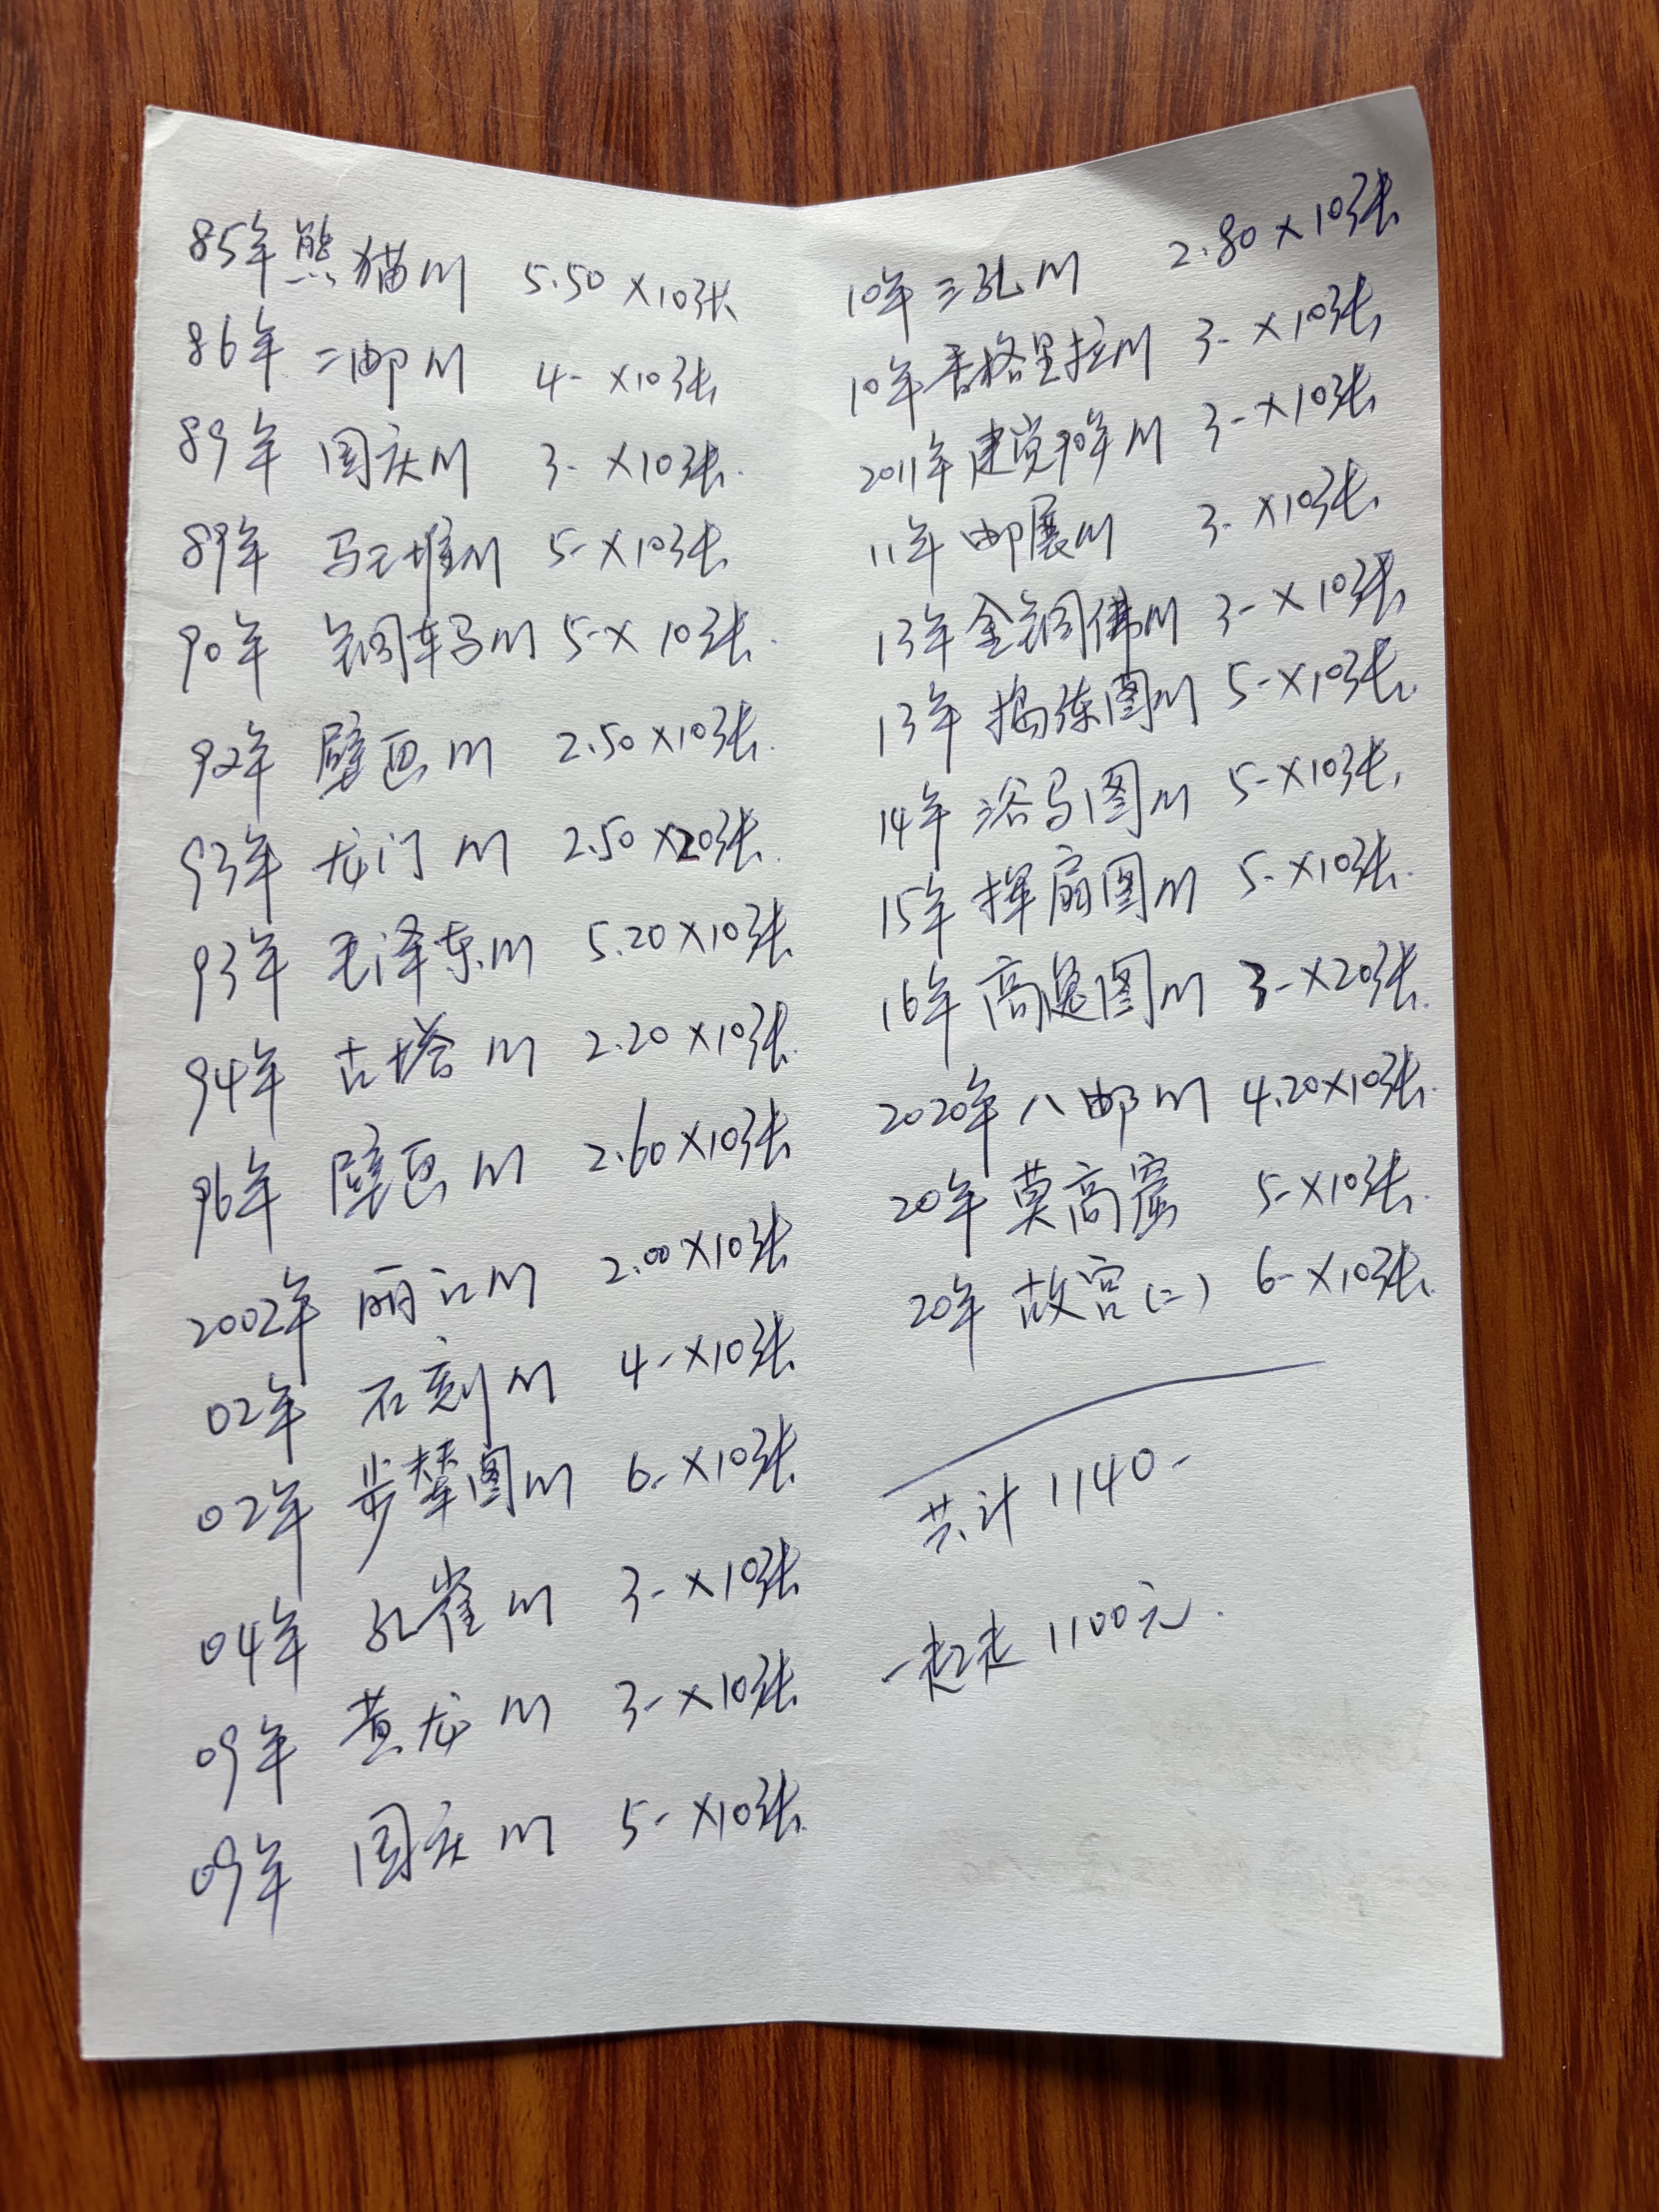 85年 熊猫M 5.50×10张
86年 二邮M 4-×10张
89年 国庆M 3-×10张.
89年 马王堆M 5-×10张
90年 铜车马M 5-×10张.
92年 壁画M 2.50×10张.
93年 龙门M 2.50×20张.
93年 毛泽东M 5.20×10张
94年 古塔M 2.20×10张.
96年 壁画M 2.60×10张
2002年 丽江M 2.00×10张
02年 石刻M 4-×10张
02年 步辇图M 6-×10张
04年 孔雀M 3-×10张
09年 黄龙M 3-×10张
09年 国庆M 5-×10张.
10年 三孔M 2.80×10张
10年 香格里拉M 3-×10张
2011年 建党90年M 3-×10张
11年 邮展M 3-×10张
13年 金铜佛M 3-×10张
13年 捣练图M 5-×10张.
14年 浴马图M 5-×10张.
15年 挥扇图M 5-×10张.
16年 高逸图M 3-×20张.
2020年 八邮M 4.20×10张.
20年 莫高窟 5-×10张.
20年 故宫(二) 6-×10张.
共计 1140-
一起走 1100元.